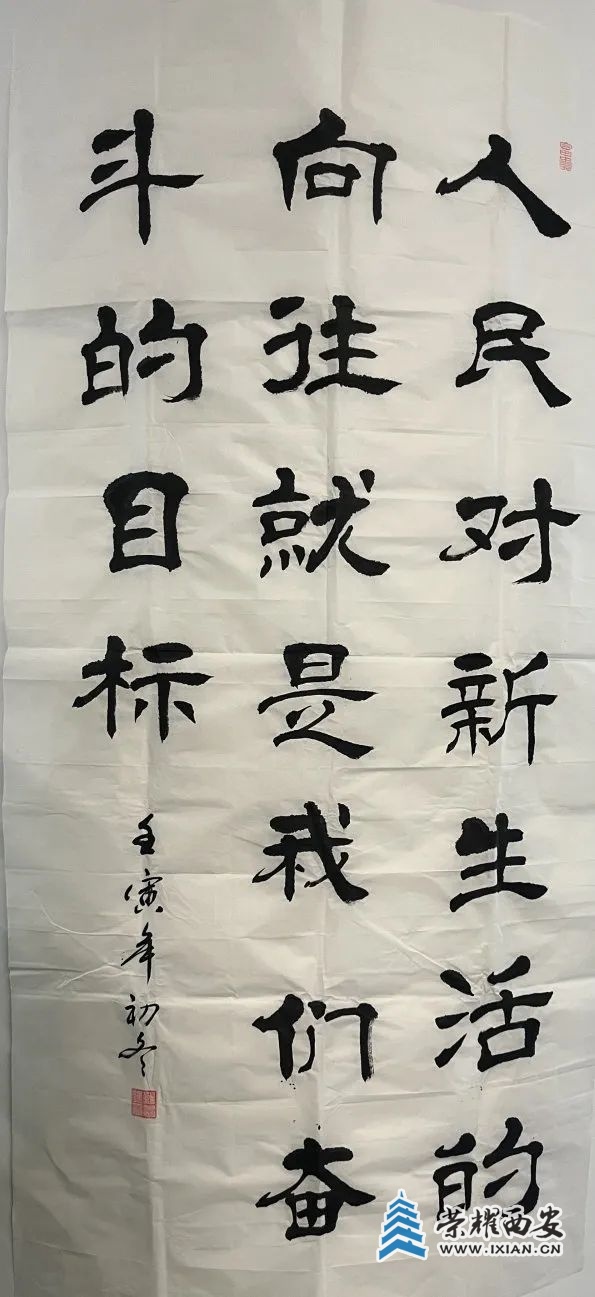 人民对新生活的
向往就是我们奋
斗的目标
壬寅年初冬
荣耀西安
WWW.IXIAN.CN